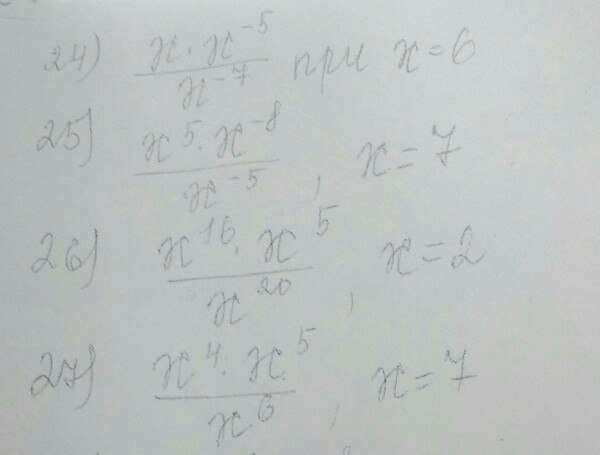 24) (x · x^-5) / x^-7 при x = 6
25) (x^5 · x^-8) / x^-5 , x = 7
26) (x^16 · x^5) / x^20 , x = 2
27) (x^4 · x^5) / x^6 , x = 7